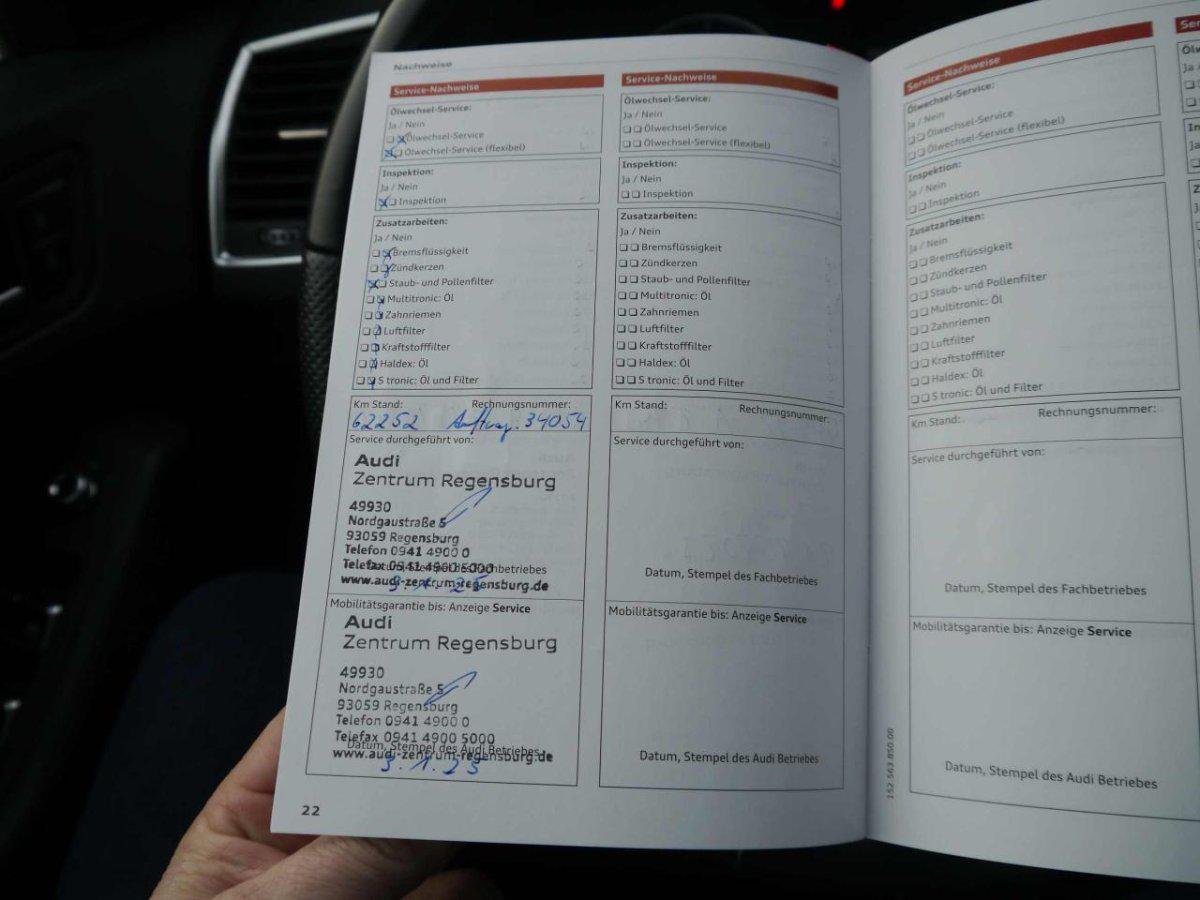 Nachweise
Service-Nachweise
Ölwechsel-Service:
Ja / Nein
Ölwechsel-Service
Ölwechsel-Service (flexibel)
Inspektion:
Ja / Nein
Inspektion
Zusatzarbeiten:
Ja / Nein
Bremsflüssigkeit
Zündkerzen
Staub- und Pollenfilter
Multitronic: Öl
Zahnriemen
Luftfilter
Kraftstofffilter
Haldex: Öl
S tronic: Öl und Filter
Km Stand: Rechnungsnummer:
62252 Auftrag. 34054
Service durchgeführt von:
Audi
Zentrum Regensburg
49930
Nordgaustraße 5
93059 Regensburg
Telefon 0941 4900 0
Telefax 0941 4900 5000
Datum, Stempel des Fachbetriebes
www.audi-zentrum-regensburg.de
3.1.25
Mobilitätsgarantie bis: Anzeige Service
Audi
Zentrum Regensburg
49930
Nordgaustraße 5
93059 Regensburg
Telefon 0941 4900 0
Telefax 0941 4900 5000
Datum, Stempel des Audi Betriebes
www.audi-zentrum-regensburg.de
3.1.25
22
Service-Nachweise
Ölwechsel-Service:
Ja / Nein
Ölwechsel-Service
Ölwechsel-Service (flexibel)
Inspektion:
Ja / Nein
Inspektion
Zusatzarbeiten:
Ja / Nein
Bremsflüssigkeit
Zündkerzen
Staub- und Pollenfilter
Multitronic: Öl
Zahnriemen
Luftfilter
Kraftstofffilter
Haldex: Öl
S tronic: Öl und Filter
Km Stand: Rechnungsnummer:
Service durchgeführt von:
Datum, Stempel des Fachbetriebes
Mobilitätsgarantie bis: Anzeige Service
Datum, Stempel des Audi Betriebes
152.563.850.00
Service-Nachweise
Ölwechsel-Service:
Ja / Nein
Ölwechsel-Service
Ölwechsel-Service (flexibel)
Inspektion:
Ja / Nein
Inspektion
Zusatzarbeiten:
Ja / Nein
Bremsflüssigkeit
Zündkerzen
Staub- und Pollenfilter
Multitronic: Öl
Zahnriemen
Luftfilter
Kraftstofffilter
Haldex: Öl
S tronic: Öl und Filter
Km Stand: Rechnungsnummer:
Service durchgeführt von:
Datum, Stempel des Fachbetriebes
Mobilitätsgarantie bis: Anzeige Service
Datum, Stempel des Audi Betriebes